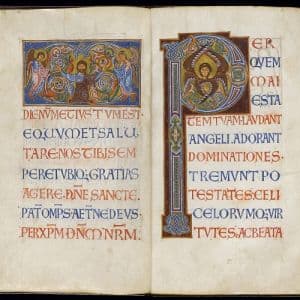 DIGNUM ET IUSTUM EST
EQUUM ET SALU
TARE NOS TIBI SEM
PER ET UBIQ; GRATIAS
AGERE. DNE SANCTE
PAT OMPS AETNE DEUS
PER XPM DNM NRM.
PER
QUEM
MAI
ESTA
TEM TUAM LAUDANT
ANGELI. ADORANT
DOMINATIONES.
TREMUNT PO
TESTATES. CELI
CELORUMQ; VIR
TUTES. AC BEATA